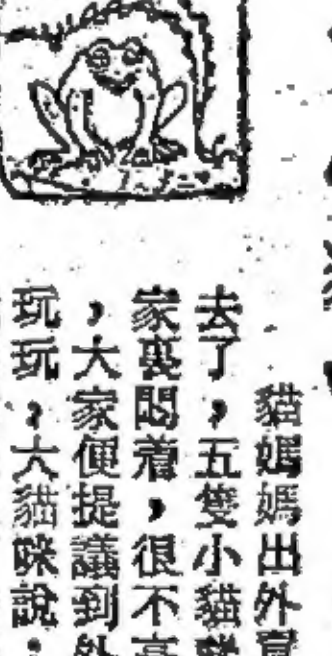 貓媽媽出外買
去了,五隻小貓
家裏悶着,很不高
,大家便提議到外
玩玩,大貓咪說: